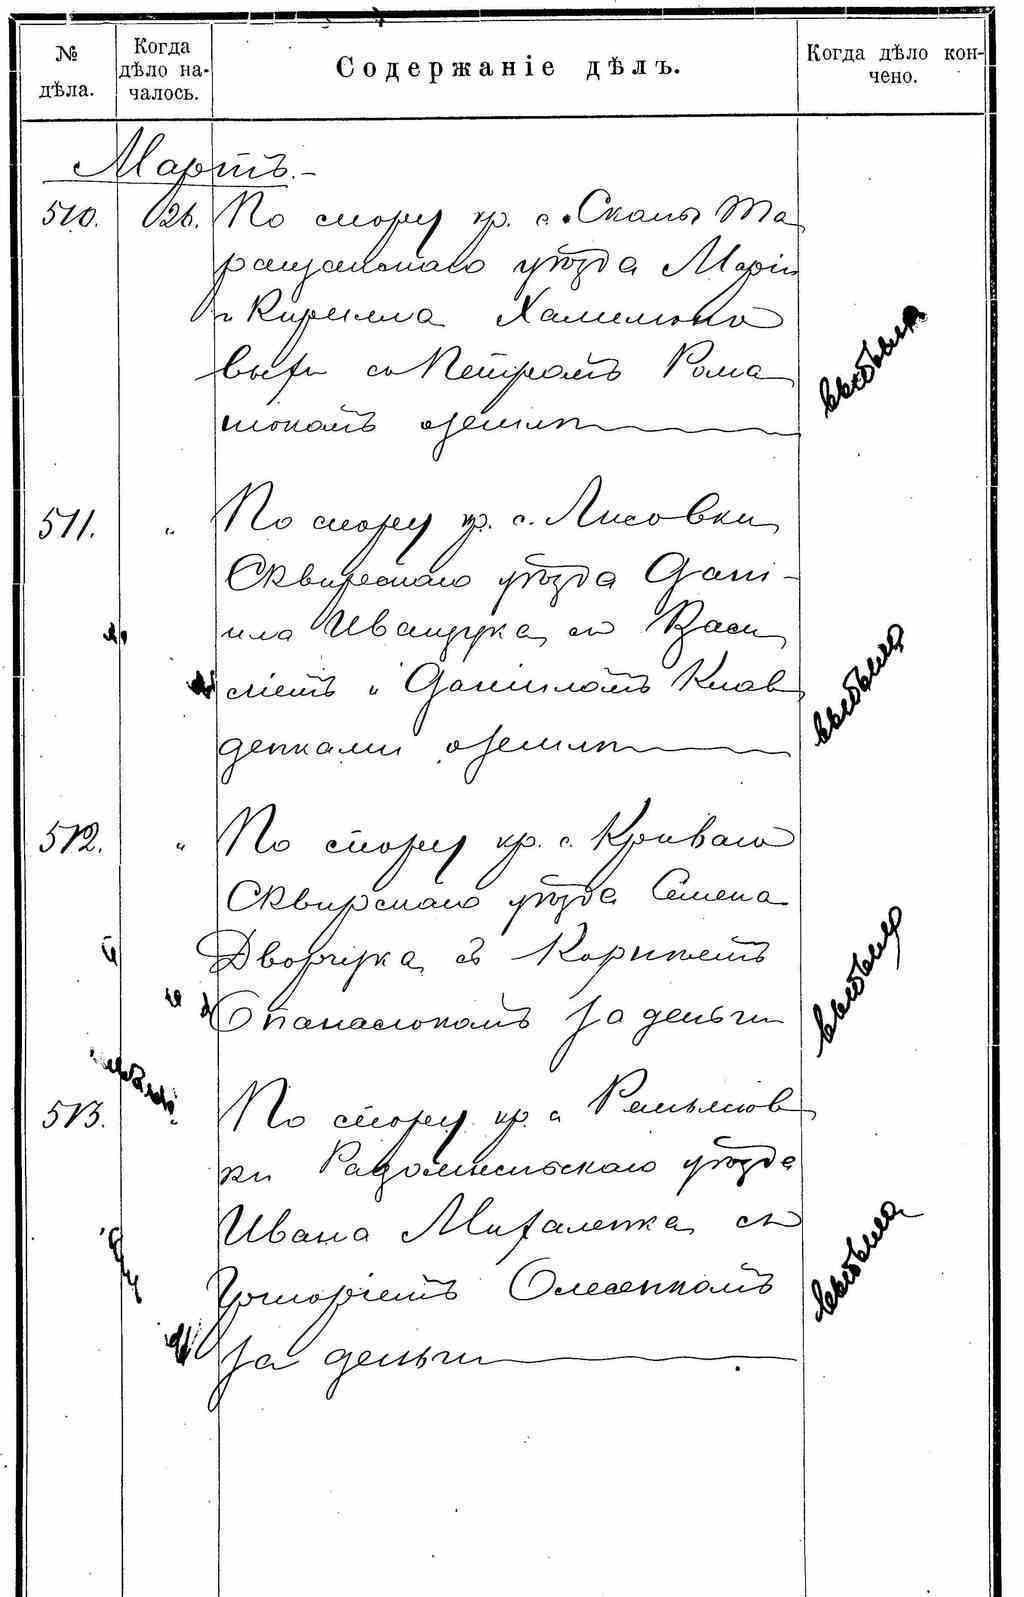 № дѣла.
Когда дѣло на-
чалось.
Содержаніе дѣлъ.
Когда дѣло кон-
чено.
Мартъ.-
510. 26. По спору кр. с. Скалы Та
ращанскаго уѣзда Маріи
и Кирилла Халимоно
выхъ съ Петромъ Рома
нюкомъ о землѣ
выбыла
511. „ По спору кр. с. Лисовки
Сквирскаго уѣзда Дані-
ила Иващука съ Васи
ліемъ и Даниломъ
денками о землѣ
выбыла
512. „ По спору кр. с. Криваго
Сквирскаго уѣзда Семена
Дворчука съ Корнѣемъ
Опанасюкомъ за деньги
выбыла
513. „ По спору кр. с.
ки Радомысльскаго уѣзда
Ивана Михаленка съ
Григоріемъ Олесенкомъ
за деньги
выбыла